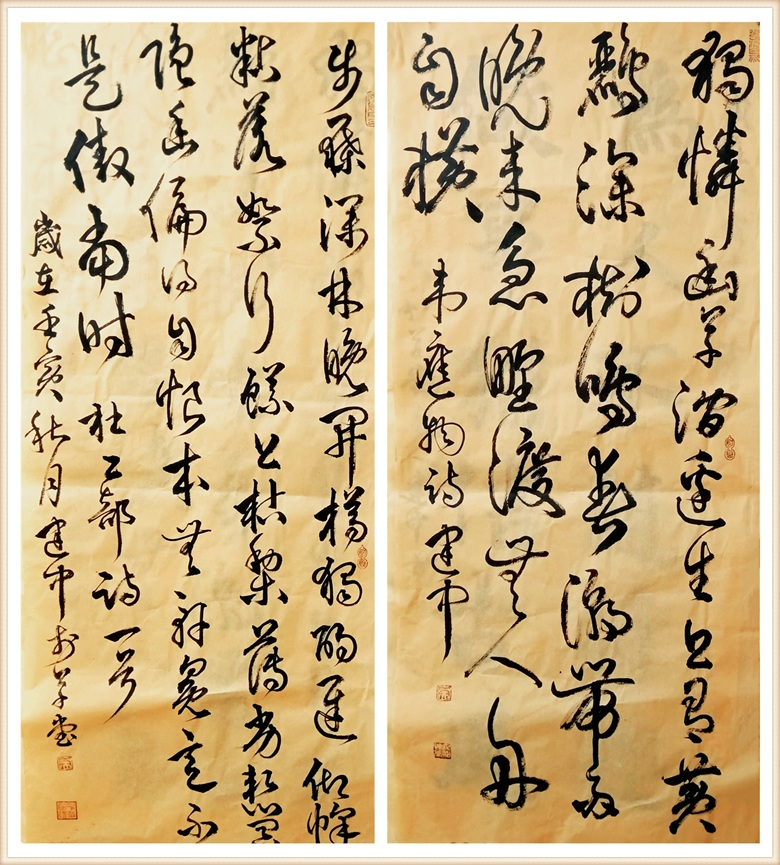 獨憐幽草澗邊生上有黃
鸝深樹鳴春潮帶雨
晚來急野渡無人舟
自橫
韋應物詩 建中
步屧深林晚開樽獨酌遲仰蜂
粘落絮行蟻上枯梨薄劣慚真
隱幽偏得自怡本無軒冕意不
是傲當時 杜工部詩一首
歲在壬寅秋月建中於草堂